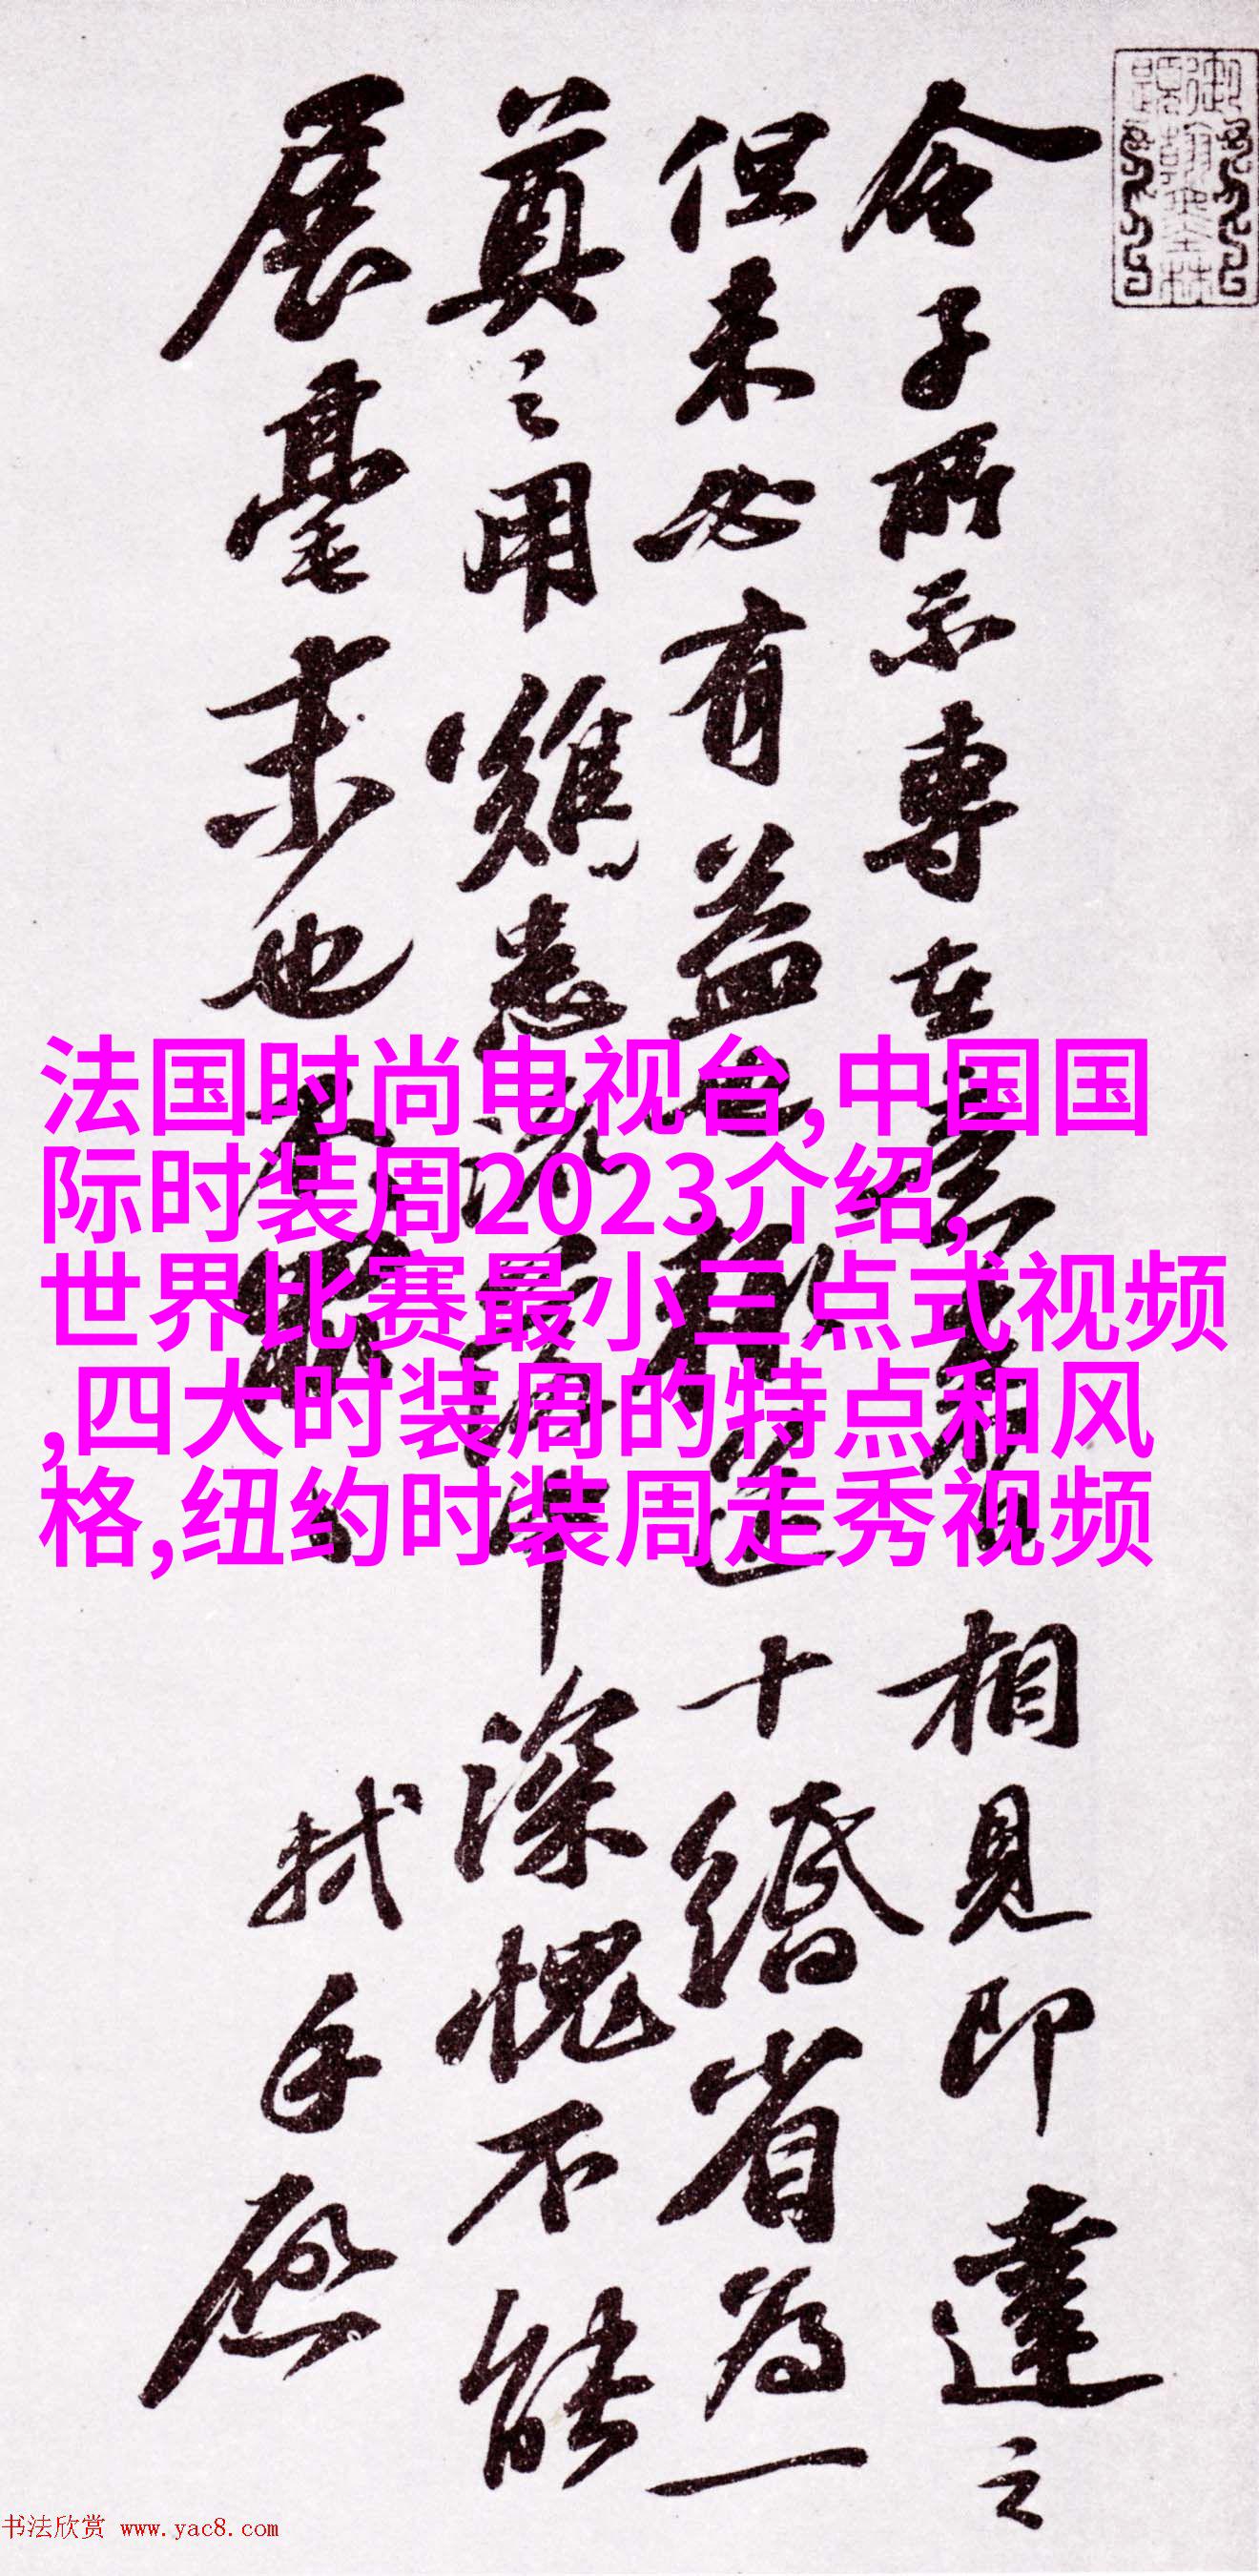 令子所示專在意来日相見即達之
但未必有益也輒送十緡省為一
奠之用雖患流落中深愧不能
展毫末也不罪
軾手啟
法国时尚电视台,中国国
际时装周2023介绍,
世界比赛最小三点式视频
,四大时装周的特点和风
格,纽约时装周走秀视频
书法欣赏 www.yac8.com